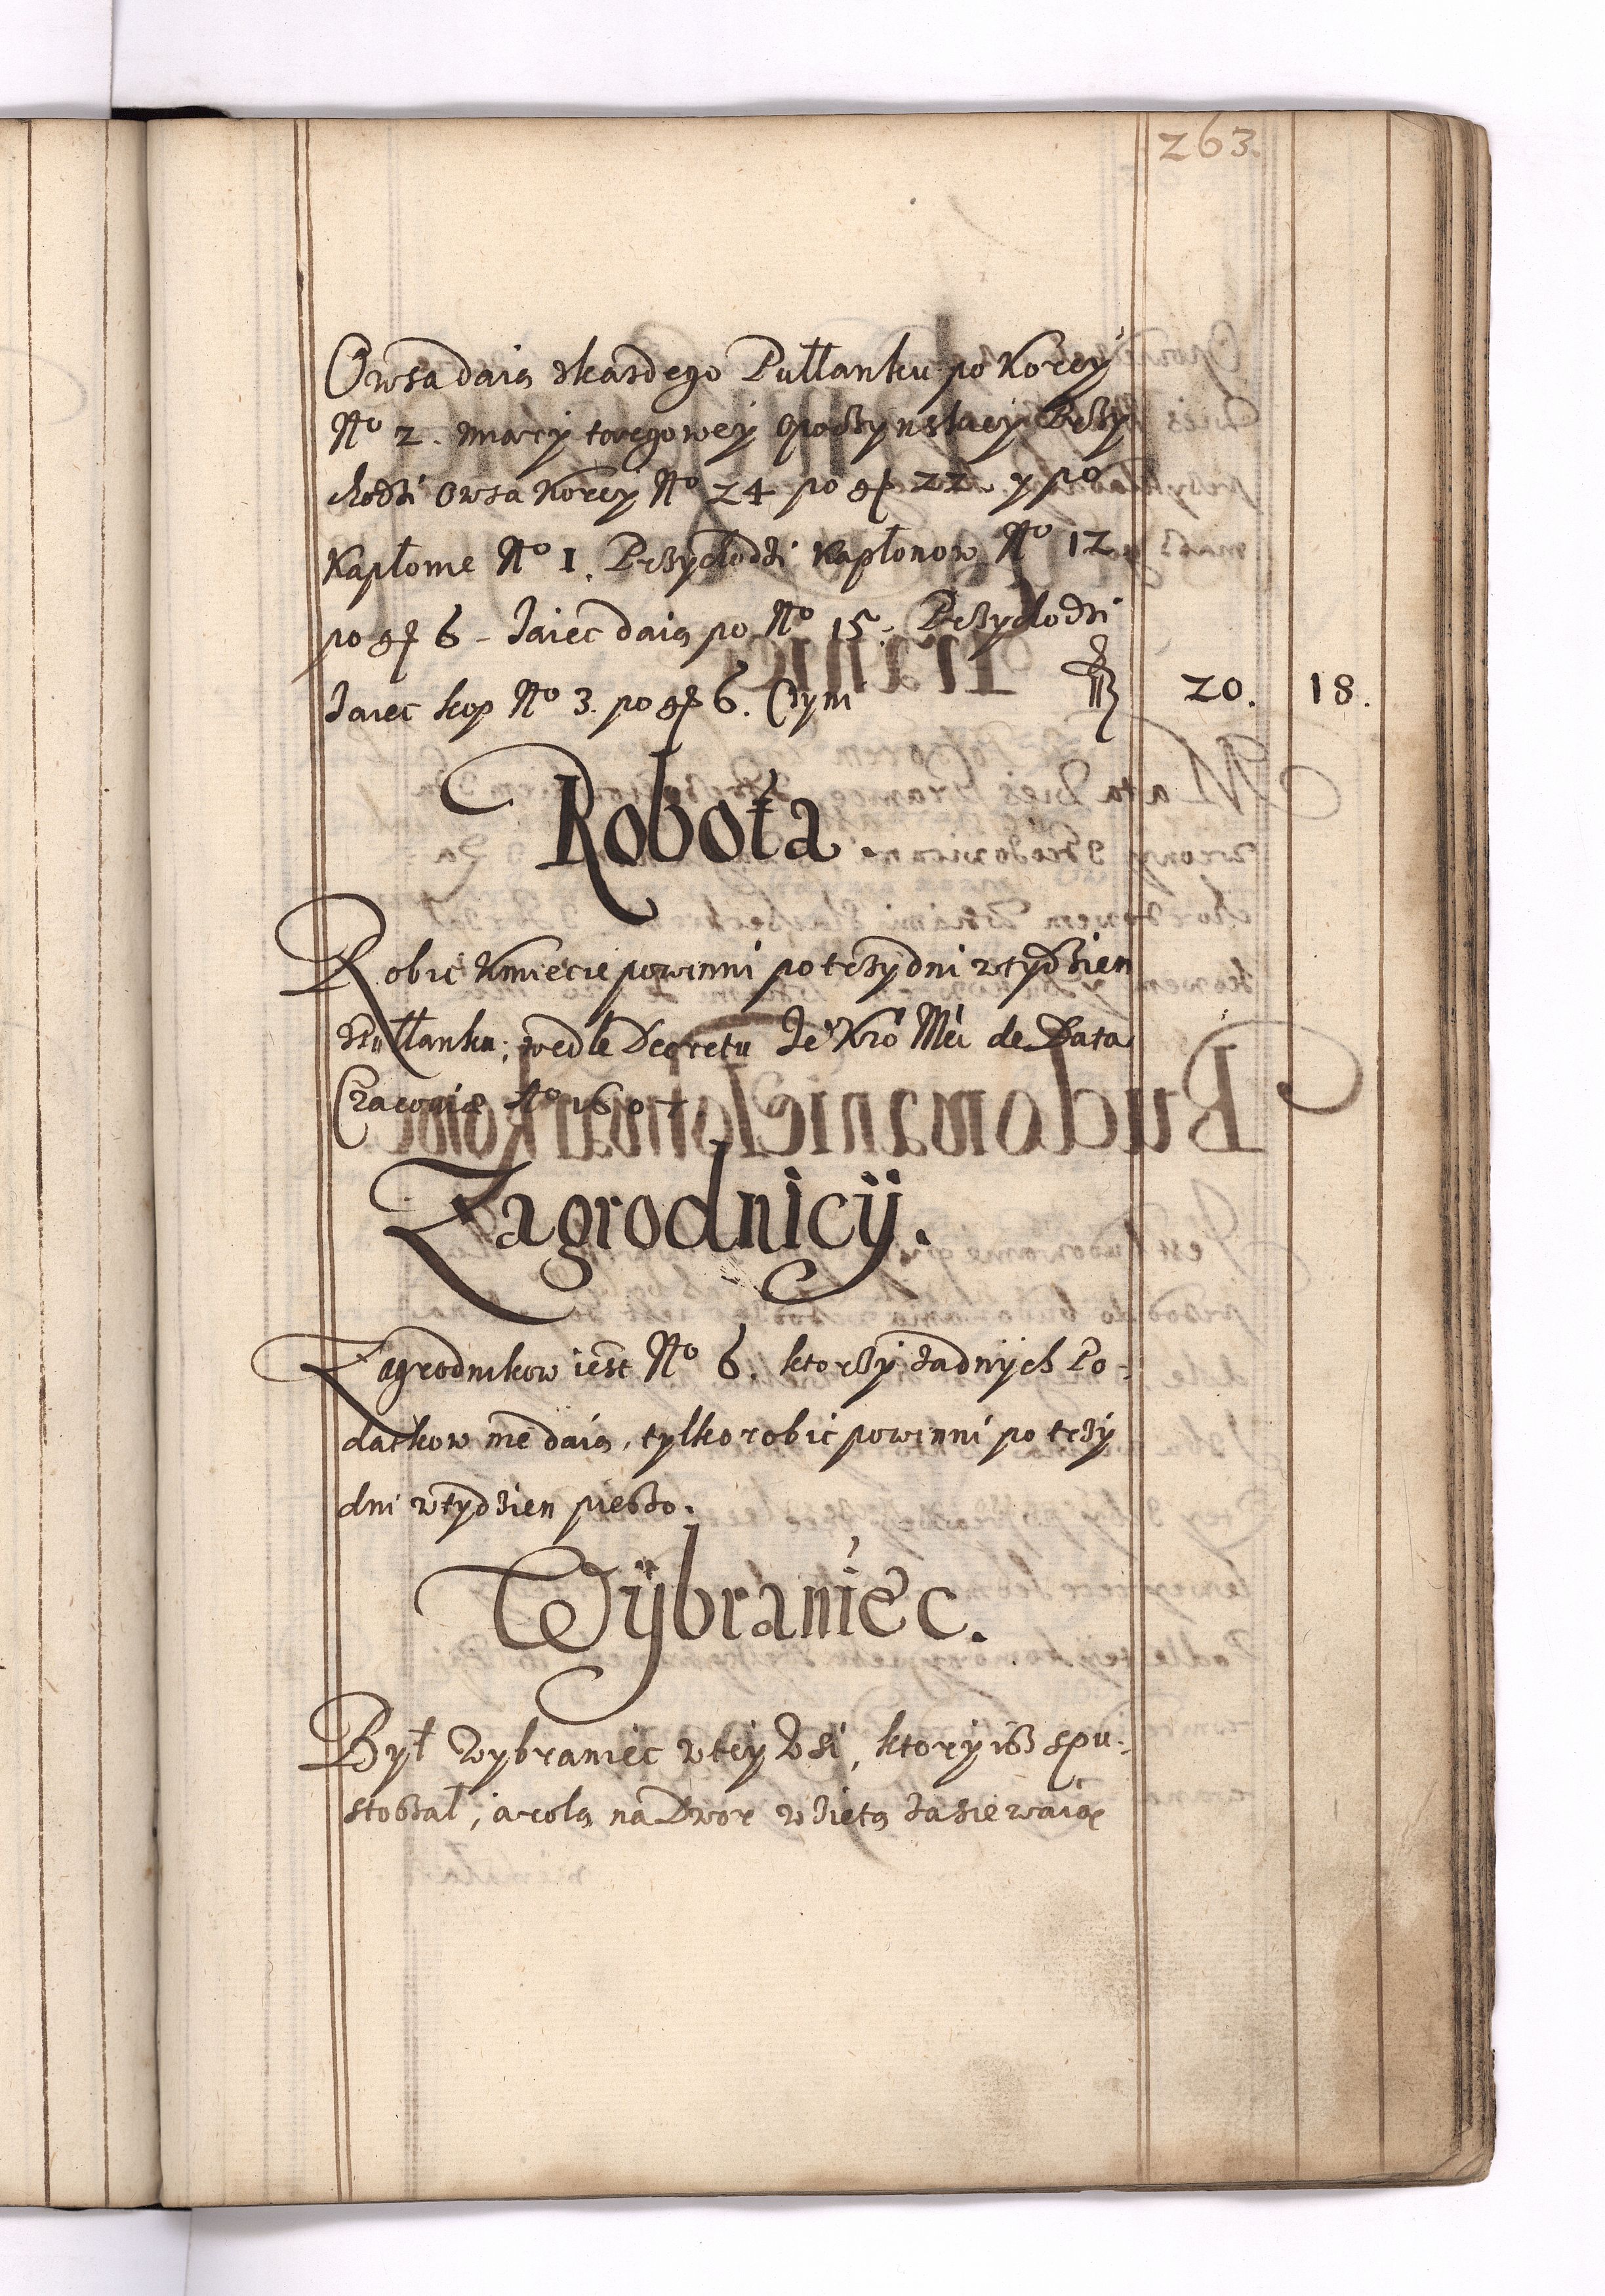 263.
Owsa daią zkazdego Pułłanku po Korcy
No 2. miary targowey opoczynskiey Przy
chodzi Owsa Korcy No 24 po gr 22 y po
Kapłonie No 1. Przychodzi Kapłonow No 12
po gr 6 - Jaiec daią po No 15. Przychodzi
Jaiec kop No 3. po gr 6. Czyni 20. 18.
Robota.
Robić Kmiecie powinni po trzy dni w tydzien
z Pułłanku, wedle Decretu Je Kro Mci de Data
Cracoviæ Ao 160
Zagrodnicÿ.
Zagrodnikow iest No 6. ktorzy zadnych Po-
datkow nie daią, tylko robić powinni po trzy
dni w tydzien pieszo.
Wÿbraniec.
Był Wybraniec w tey Wsi, ktory iß spu-
stoszał, a rolą na Dwor wzietą zasiewaią